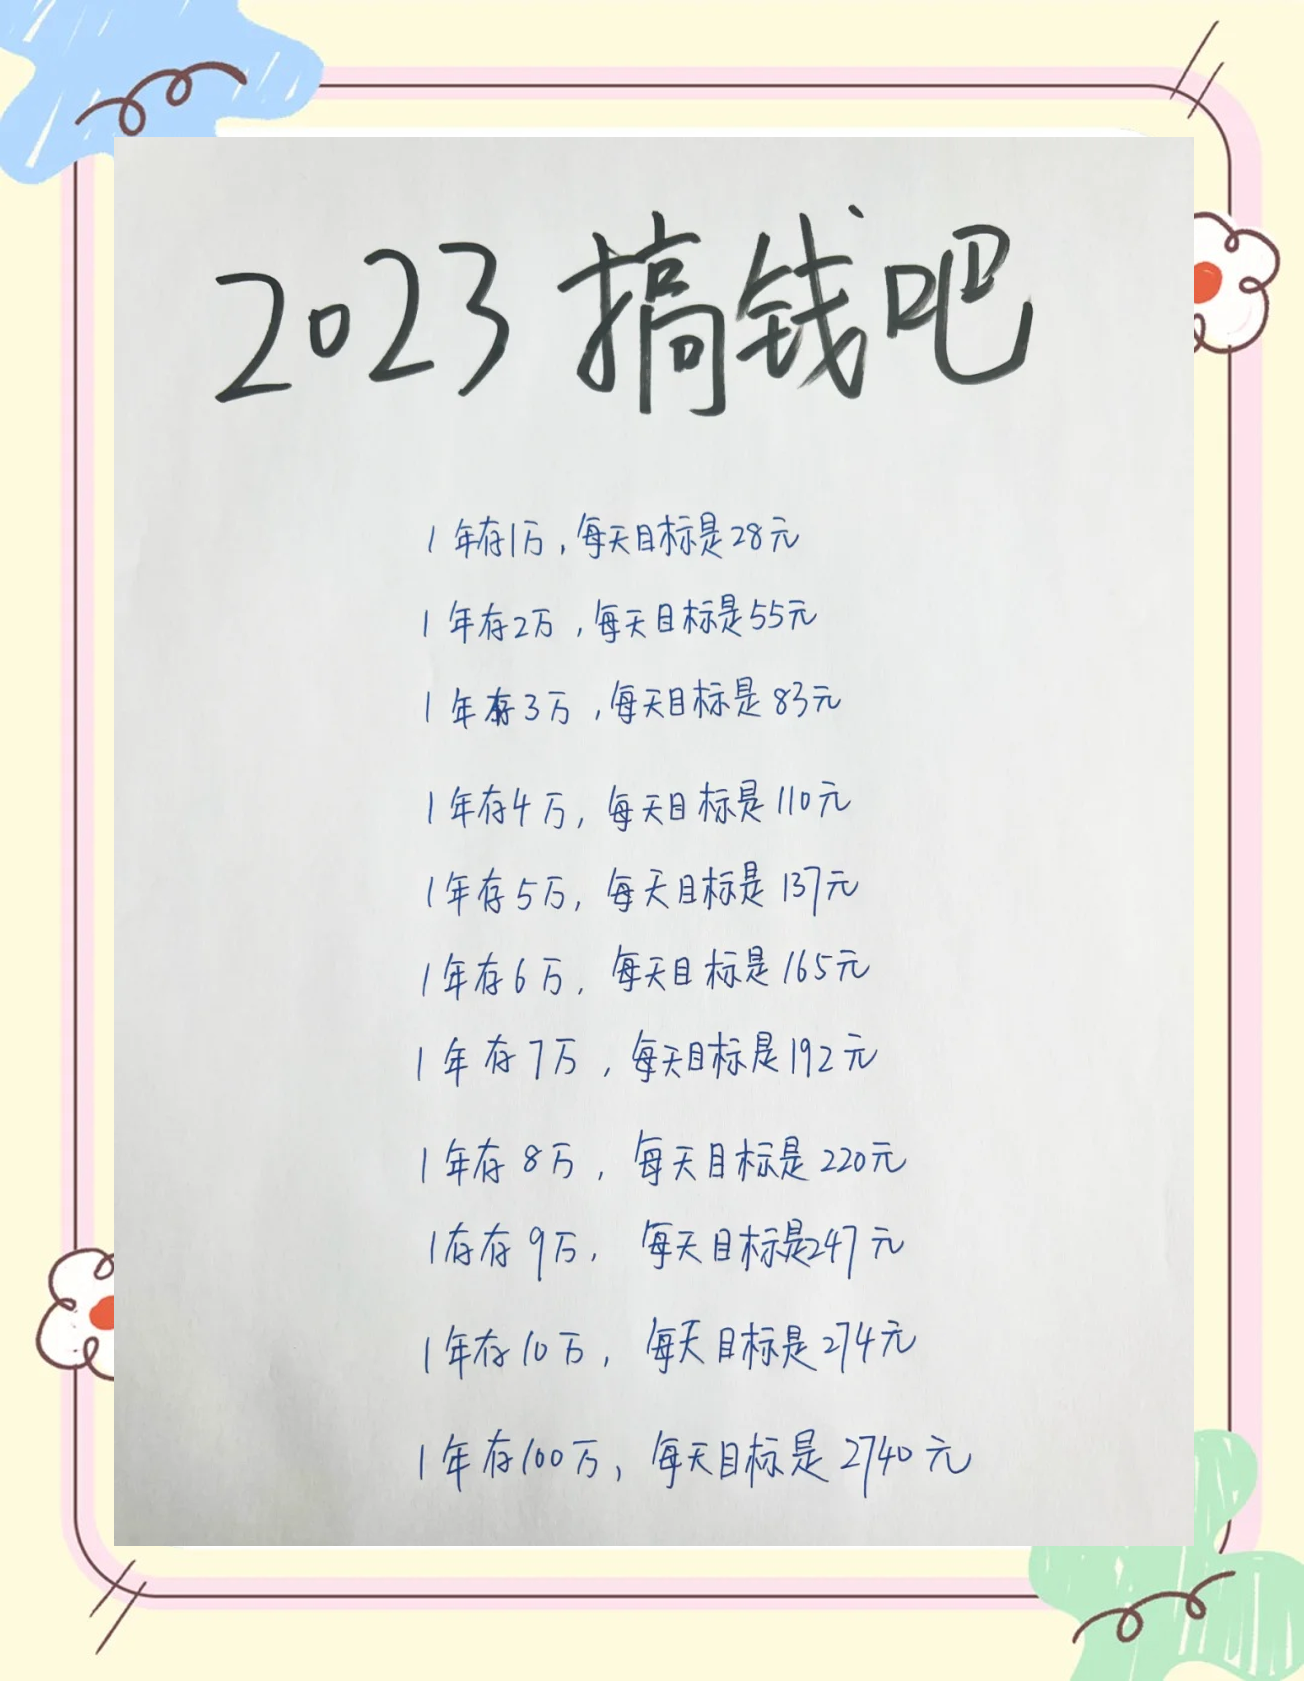 2023搞钱吧
1年存1万,每天目标是28元
1年存2万,每天目标是55元
1年存3万,每天目标是83元
1年存4万,每天目标是110元
1年存5万,每天目标是137元
1年存6万,每天目标是165元
1年存7万,每天目标是192元
1年存8万,每天目标是220元
1存存9万,每天目标是247元
1年存10万,每天目标是274元
1年存100万,每天目标是2740元